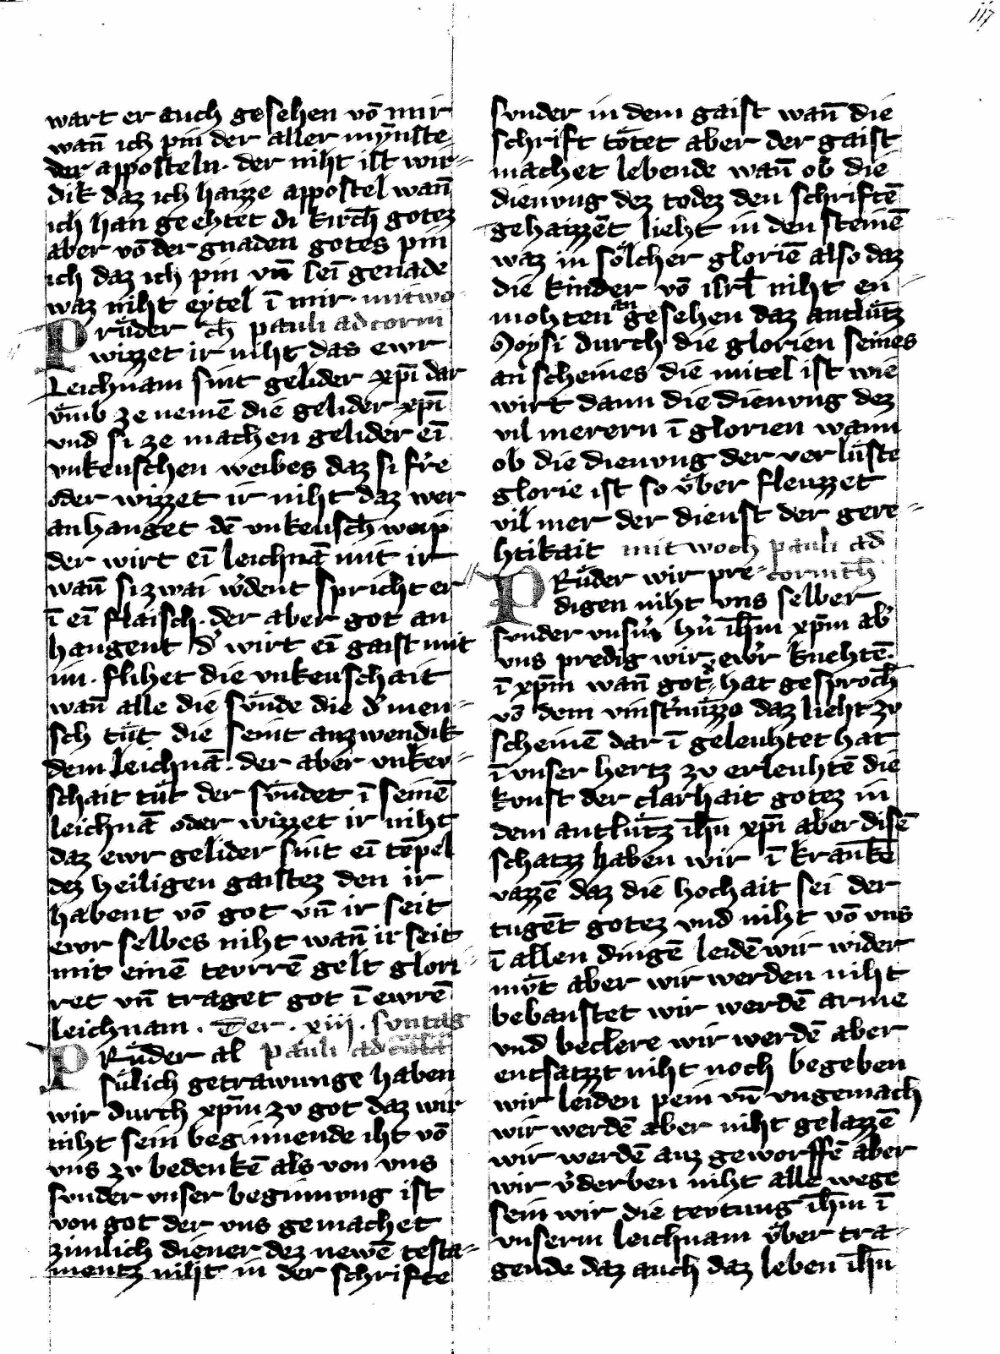 117
wart er auch gesehen vō mir
wañ ich pin der aller mynste
der apposteln. der niht ist wir-
dik daz ich haizze appostel wañ
ich han geehtet di kirch gotez
aber vō der gnaden gotes pin
ich daz ich pin vñ sei genade
waz niht eytel ī mir. mitwo
Průder ch pauli ad corin
wizzet ir niht das ewr
Leichnam sint gelider xpī dar
vmb ze nemē die gelider xpī
vnd si ze machen gelider eī
vnkeuschen weibes daz si fre
oder wizzet ir niht daz wer
anhanget dē vnkeusch weip
der wirt eī leichnā mit ir
wañ si zwai wdent spricht er
ī eī flaisch. der aber got an
hangent d' wirt eī gaist mit
im. flihet die vnkeuschait
wañ alle die sůnde die d' men-
sch tůt die seint auzwendik
dem Leichnā. der aber vnkev-
schait tůt der sůndet ī seinē
leichnā oder wizzet ir niht
daz ewr gelider sint eī tēpel
dez heiligen gaistez den ir
habent vō got vñ ir seit
ewr selbes niht wañ ir seit
mit einē tevrrē gelt glori-
ret vñ traget got ī ewrē
leichnam. Der. xiii. suntag
Průder al pauli ad
sůlich getrawunge haben
wir durch xpm zv got daz wir
niht sein beginnende iht vō
vns zv bedenkē als von vns
sunder vnser beginnvng ist
von got der vns gemachet
zimlich diener dez newē testa-
mentz niht in der schrifte
sunder in dem gaist wañ die
schrift tôtet aber der gaist
machet lebende wañ ob die
dienvng dez todez den schriftē
gehaizzēt lieht in den steinē
waz in sôlcher gloriē also daz
die kinder vō isrl niht en
mohten an gesehen daz antlůtz
Moysi durch die glorien seines
an scheines die mitel ist wie
wirt dann die dienvng dez
vil merern ī glorien wann
ob die dienvng der verlůste
glorie ist so ůber fleuzzet
vil mer der dienst der gere-
htikait mitwoch pauli ad
Průder wir pre- corinth
digen niht vns selber
sunder vnsrn hrn ihm xpm ab'
vns predig wir ewr knehtē.
ī xpm wañ got hat gesproch
vō dem vinstnůzzo daz lieht zv
scheinē dar ī geleuhtet hat
ī vnser hertz zv erleuhtē die
kvnst der clarhait gotez in
dem antlůtz ihū xpī aber disē
schatz haben wir ī krankē
vazzē daz die hochait sei der
tugēt gotez vnd niht vō vns
ī allen dingē leidē wir wider
můt aber wir werden niht
bebanstet wir werdē arme
vnd beclere wir werdē aber
entsatzt niht noch begeben
wir leiden pein vñ vngemach
wir werdē aber niht gelazzē
wir werdē auz geworffē aber
wir v'derben niht alle wege
sein wir die teytung ihm ī
vnserm leichnam ůber tra-
gende daz auch daz leben ihū